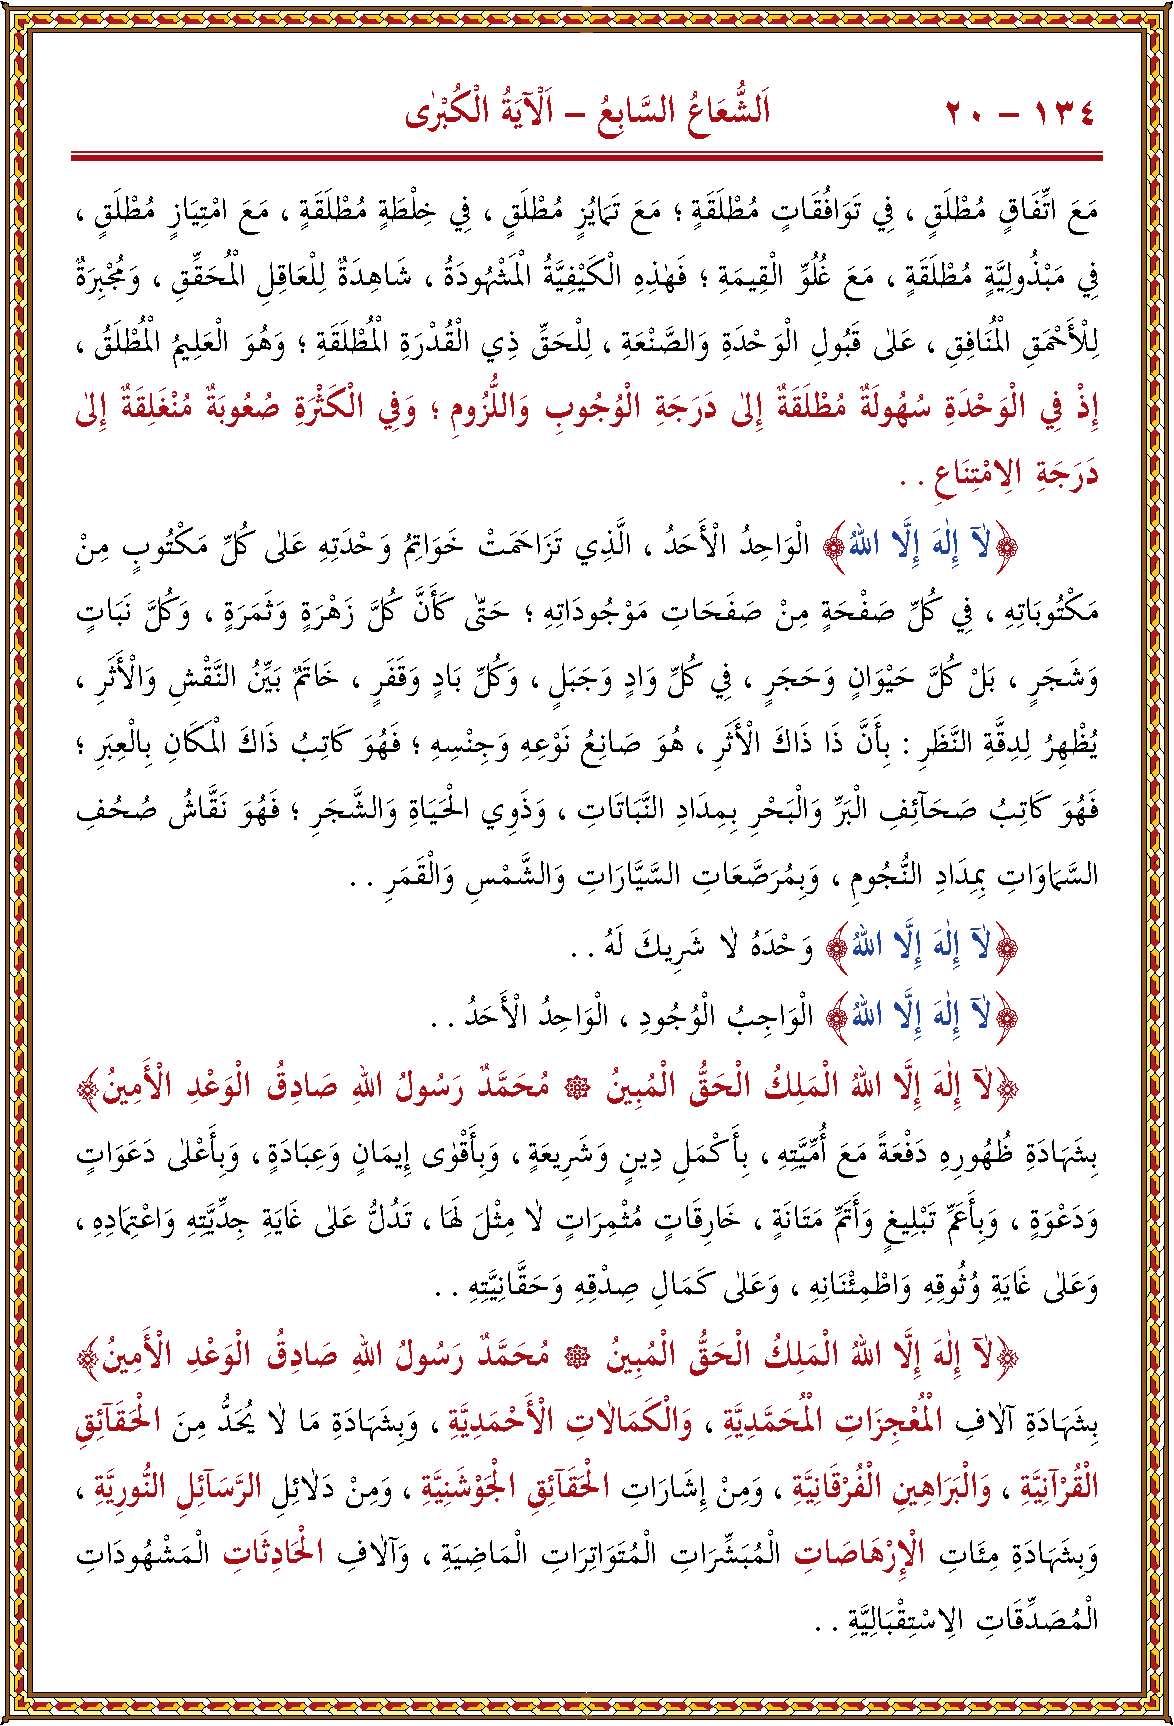 ١٣٤ – ٢٠ اَلشُّعَاعُ السَّابِعُ – اَلْآيَةُ الْكُبْرٰى
مَعَ اتِّفَاقٍ مُطْلَقٍ ، فِي تَوَافُقَاتٍ مُطْلَقَةٍ ؛ مَعَ تَمَايُزٍ مُطْلَقٍ ، فِي خِلْطَةٍ مُطْلَقَةٍ ، مَعَ امْتِيَازٍ مُطْلَقٍ ،
فِي مَبْذُولِيَّةٍ مُطْلَقَةٍ ، مَعَ غُلُوِّ الْقِيمَةِ ؛ فَهٰذِهِ الْكَيْفِيَّةُ الْمَشْهُودَةُ ، شَاهِدَةٌ لِلْعَاقِلِ الْمُحَقِّقِ ، وَمُجْبِرَةٌ
لِلْأَحْمَقِ الْمُنَافِقِ ، عَلٰى قَبُولِ الْوَحْدَةِ وَالصَّنْعَةِ ، لِلْحَقِّ ذِي الْقُدْرَةِ الْمُطْلَقَةِ ؛ وَهُوَ الْعَلِيمُ الْمُطْلَقُ ،
إِذْ فِي الْوَحْدَةِ سُهُولَةٌ مُطْلَقَةٌ إِلٰى دَرَجَةِ الْوُجُوبِ وَاللُّزُومِ ؛ وَفِي الْكَثْرَةِ صُعُوبَةٌ مُنْغَلِقَةٌ إِلٰى
دَرَجَةِ الِامْتِنَاعِ . .
﴿لَآ إِلٰهَ إِلَّا اللهُ﴾ الْوَاحِدُ الْأَحَدُ ، الَّذِي تَزَاحَمَتْ خَوَاتِمُ وَحْدَتِهِ عَلٰى كُلِّ مَكْتُوبٍ مِنْ
مَكْتُوبَاتِهِ ، فِي كُلِّ صَفْحَةٍ مِنْ صَفَحَاتِ مَوْجُودَاتِهِ ؛ حَتّٰى كَأَنَّ كُلَّ زَهْرَةٍ وَثَمَرَةٍ ، وَكُلَّ نَبَاتٍ
وَشَجَرٍ ، بَلْ كُلَّ حَيْوَانٍ وَحَجَرٍ ، فِي كُلِّ وَادٍ وَجَبَلٍ ، وَكُلِّ بَادٍ وَقَفَرٍ ، خَاتَمٌ بَيِّنُ النَّقْشِ وَالْأَثَرِ ،
يُظْهِرُ لِدِقَّةِ النَّظَرِ : بِأَنَّ ذَا ذَاكَ الْأَثَرِ ، هُوَ صَانِعُ نَوْعِهِ وَجِنْسِهِ ؛ فَهُوَ كَاتِبُ ذَاكَ الْمَكَانِ بِالْعِبَرِ ؛
فَهُوَ كَاتِبُ صَحَآئِفِ الْبَرِّ وَالْبَحْرِ بِمِدَادِ النَّبَاتَاتِ ، وَذَوِي الْحَيَاةِ وَالشَّجَرِ ؛ فَهُوَ نَقَّاشُ صُحُفِ
السَّمَاوَاتِ بِمِدَادِ النُّجُومِ ، وَبِمُرَصَّعَاتِ السَّيَّارَاتِ وَالشَّمْسِ وَالْقَمَرِ . .
﴿لَآ إِلٰهَ إِلَّا اللهُ﴾ وَحْدَهُ لَا شَرِيكَ لَهُ . .
﴿لَآ إِلٰهَ إِلَّا اللهُ﴾ الْوَاجِبُ الْوُجُودِ ، الْوَاحِدُ الْأَحَدُ . .
﴿لَآ إِلٰهَ إِلَّا اللهُ الْمَلِكُ الْحَقُّ الْمُبِينُ ۞ مُحَمَّدٌ رَسُولُ اللهِ صَادِقُ الْوَعْدِ الْأَمِينُ﴾
بِشَهَادَةِ ظُهُورِهِ دَفْعَةً مَعَ أُمِّيَّتِهِ ، بِأَكْمَلِ دِينٍ وَشَرِيعَةٍ ، وَبِأَقْوٰى إِيمَانٍ وَعِبَادَةٍ ، وَبِأَعْلٰى دَعَوَاتٍ
وَدَعْوَةٍ ، وَبِأَعَمِّ تَبْلِيغٍ وَأَتَمِّ مَتَانَةٍ ، خَارِقَاتٍ مُثْمِرَاتٍ لَا مِثْلَ لَهَا ، تَدُلُّ عَلٰى غَايَةِ جِدِّيَّتِهِ وَاعْتِمَادِهِ ،
وَعَلٰى غَايَةِ وُثُوقِهِ وَاطْمِئْنَانِهِ ، وَعَلٰى كَمَالِ صِدْقِهِ وَحَقَّانِيَّتِهِ . .
﴿لَآ إِلٰهَ إِلَّا اللهُ الْمَلِكُ الْحَقُّ الْمُبِينُ ۞ مُحَمَّدٌ رَسُولُ اللهِ صَادِقُ الْوَعْدِ الْأَمِينُ﴾
بِشَهَادَةِ آلَافِ الْمُعْجِزَاتِ الْمُحَمَّدِيَّةِ ، وَالْكَمَالَاتِ الْأَحْمَدِيَّةِ ، وَبِشَهَادَةِ مَا لَا يُحَدُّ مِنَ الْحَقَآئِقِ
الْقُرْآنِيَّةِ ، وَالْبَرَاهِينِ الْفُرْقَانِيَّةِ ، وَمِنْ إِشَارَاتِ الْحَقَآئِقِ الْجَوْشَنِيَّةِ ، وَمِنْ دَلَائِلِ الرَّسَآئِلِ النُّورِيَّةِ ،
وَبِشَهَادَةِ مِئَاتِ الْإِرْهَاصَاتِ الْمُبَشِّرَاتِ الْمُتَوَاتِرَاتِ الْمَاضِيَةِ ، وَآلَافِ الْحَادِثَاتِ الْمَشْهُودَاتِ
الْمُصَدِّقَاتِ الِاسْتِقْبَالِيَّةِ . .